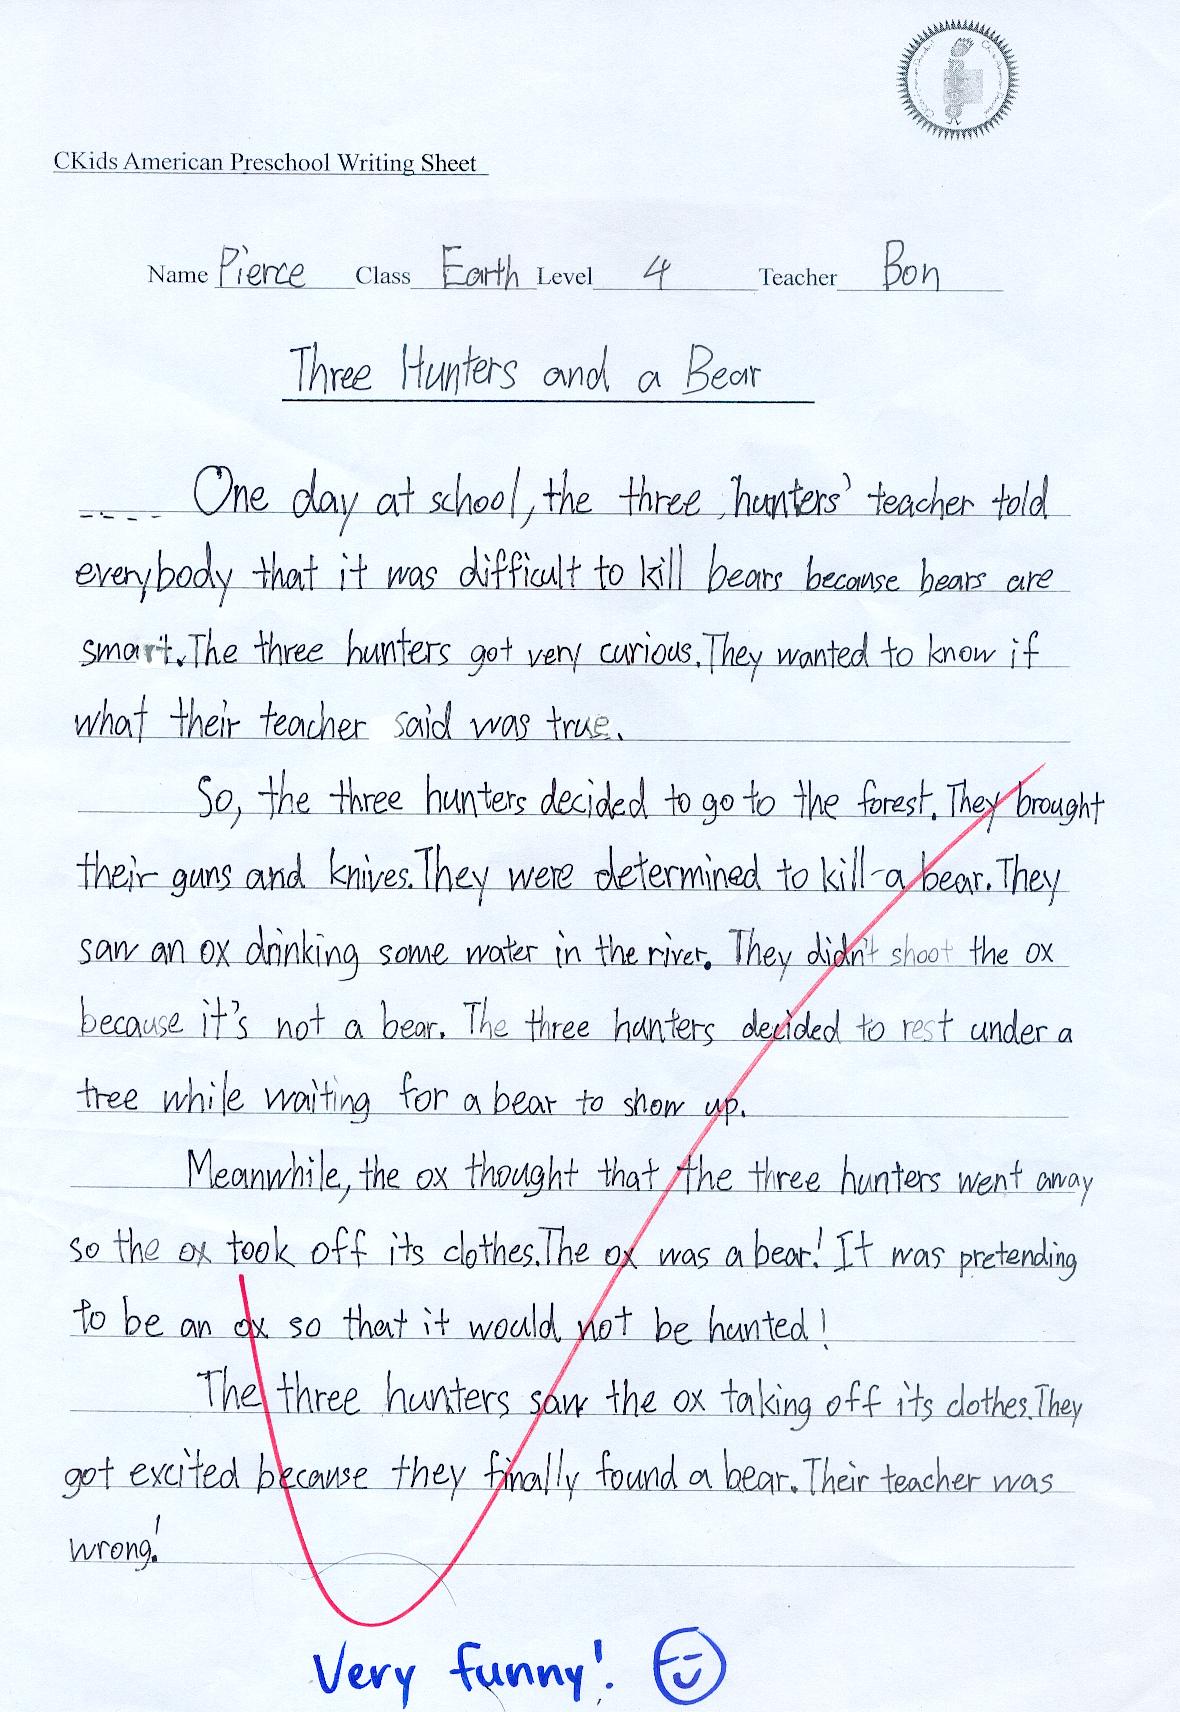 CKids American Preschool Writing Sheet
Name Pierce Class Earth Level 4 Teacher Bon
Three Hunters and a Bear
One day at school, the three hunters' teacher told
everybody that it was difficult to kill bears because bears are
smart. The three hunters got very curious. They wanted to know if
what their teacher said was true.
So, the three hunters decided to go to the forest. They brought
their guns and knives. They were determined to kill a bear. They
saw an ox drinking some water in the river. They didn't shoot the ox
because it's not a bear. The three hunters decided to rest under a
tree while waiting for a bear to show up.
Meanwhile, the ox thought that the three hunters went away
so the ox took off its clothes. The ox was a bear! It was pretending
to be an ox so that it would not be hunted!
The three hunters saw the ox taking off its clothes. They
got excited because they finally found a bear. Their teacher was
wrong!
Very funny!